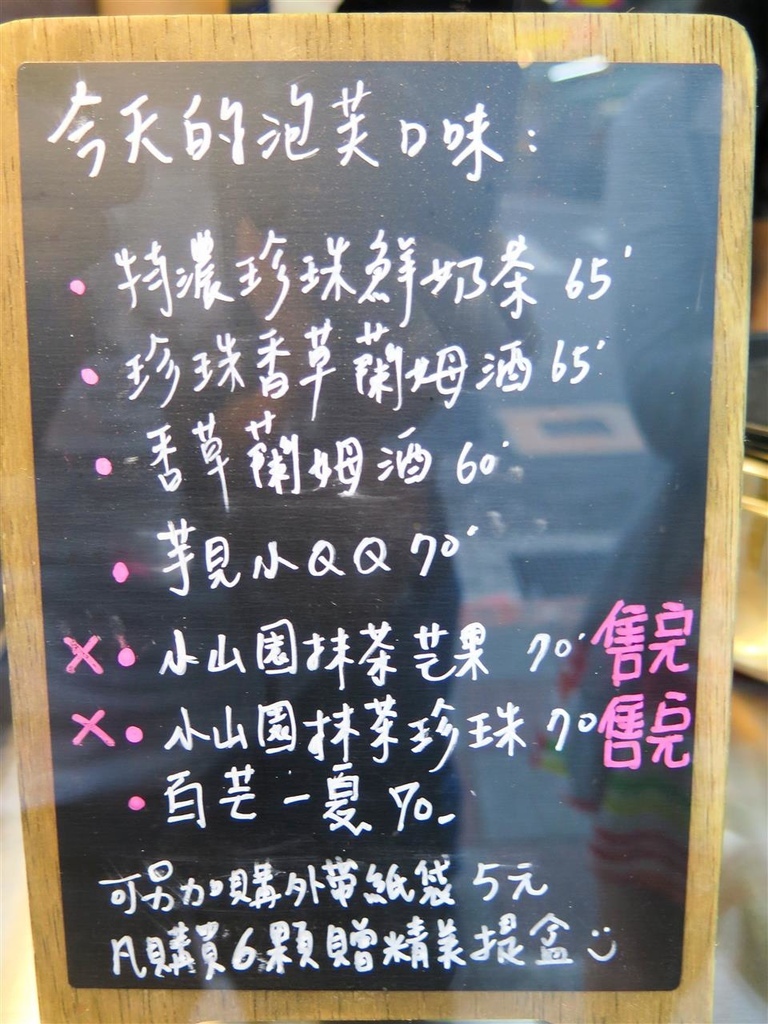 今天的泡芙口味：
• 特濃珍珠鮮奶茶 65'
• 珍珠香草蘭姆酒 65'
• 香草蘭姆酒 60'
• 芋見小QQ 70'
×• 小山園抹茶芒果 70' 售完
×• 小山園抹茶珍珠 70 售完
• 百芒一夏 70_
可另加購外帶紙袋 5元
凡購買6顆贈精美提盒